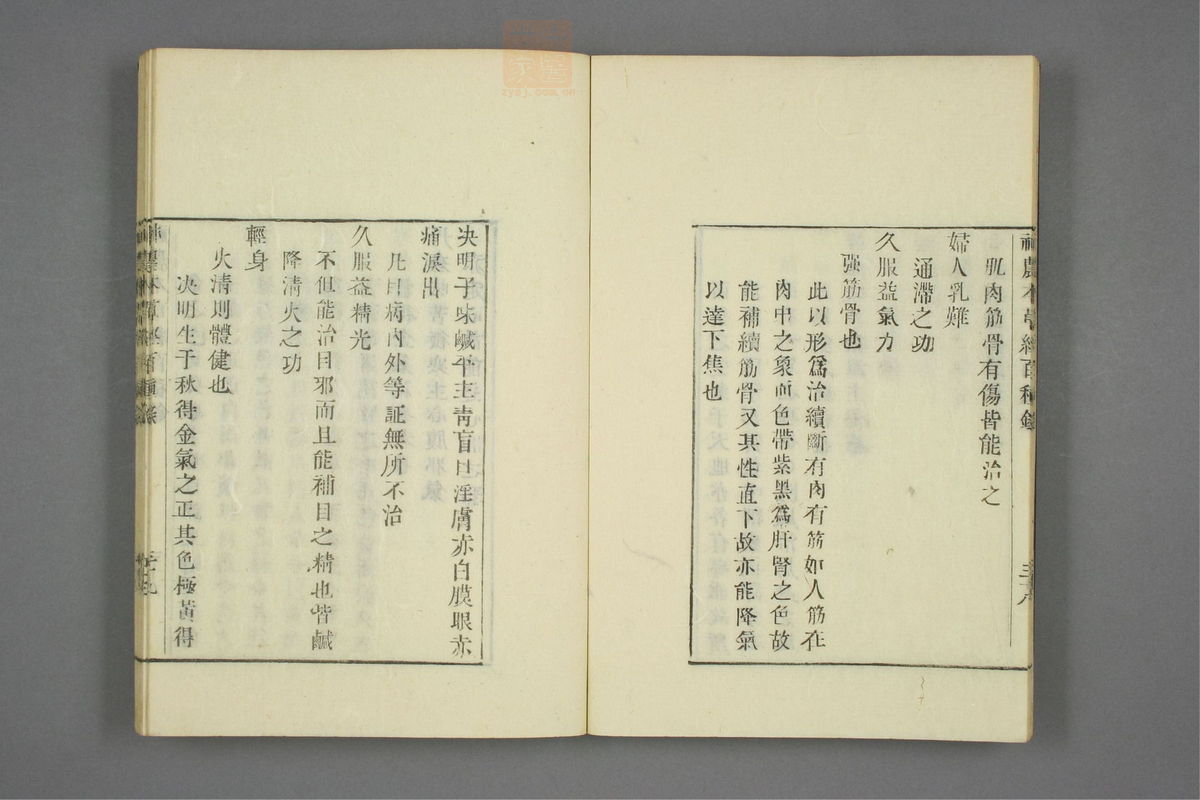 神農本草經百種錄
三十八
肌肉筋骨有傷皆能治之
婦人乳難
通滯之功
久服益氣力
强筋骨也
此以形爲治續斷有肉有筋如人筋在
肉中之象而色帶紫黑爲肝腎之色故
能補續筋骨又其性直下故亦能降氣
以達下焦也
决明子味鹹平主靑盲目淫膚赤白膜眼赤
痛淚出
凡目病內外等証無所不治
久服益精光
不但能治目邪而且能補目之精也皆鹹
降清火之功
輕身
火清則體健也
决明生于秋得金氣之正其色極黃得
神農本草經百種錄
三十九
zysj.com.cn